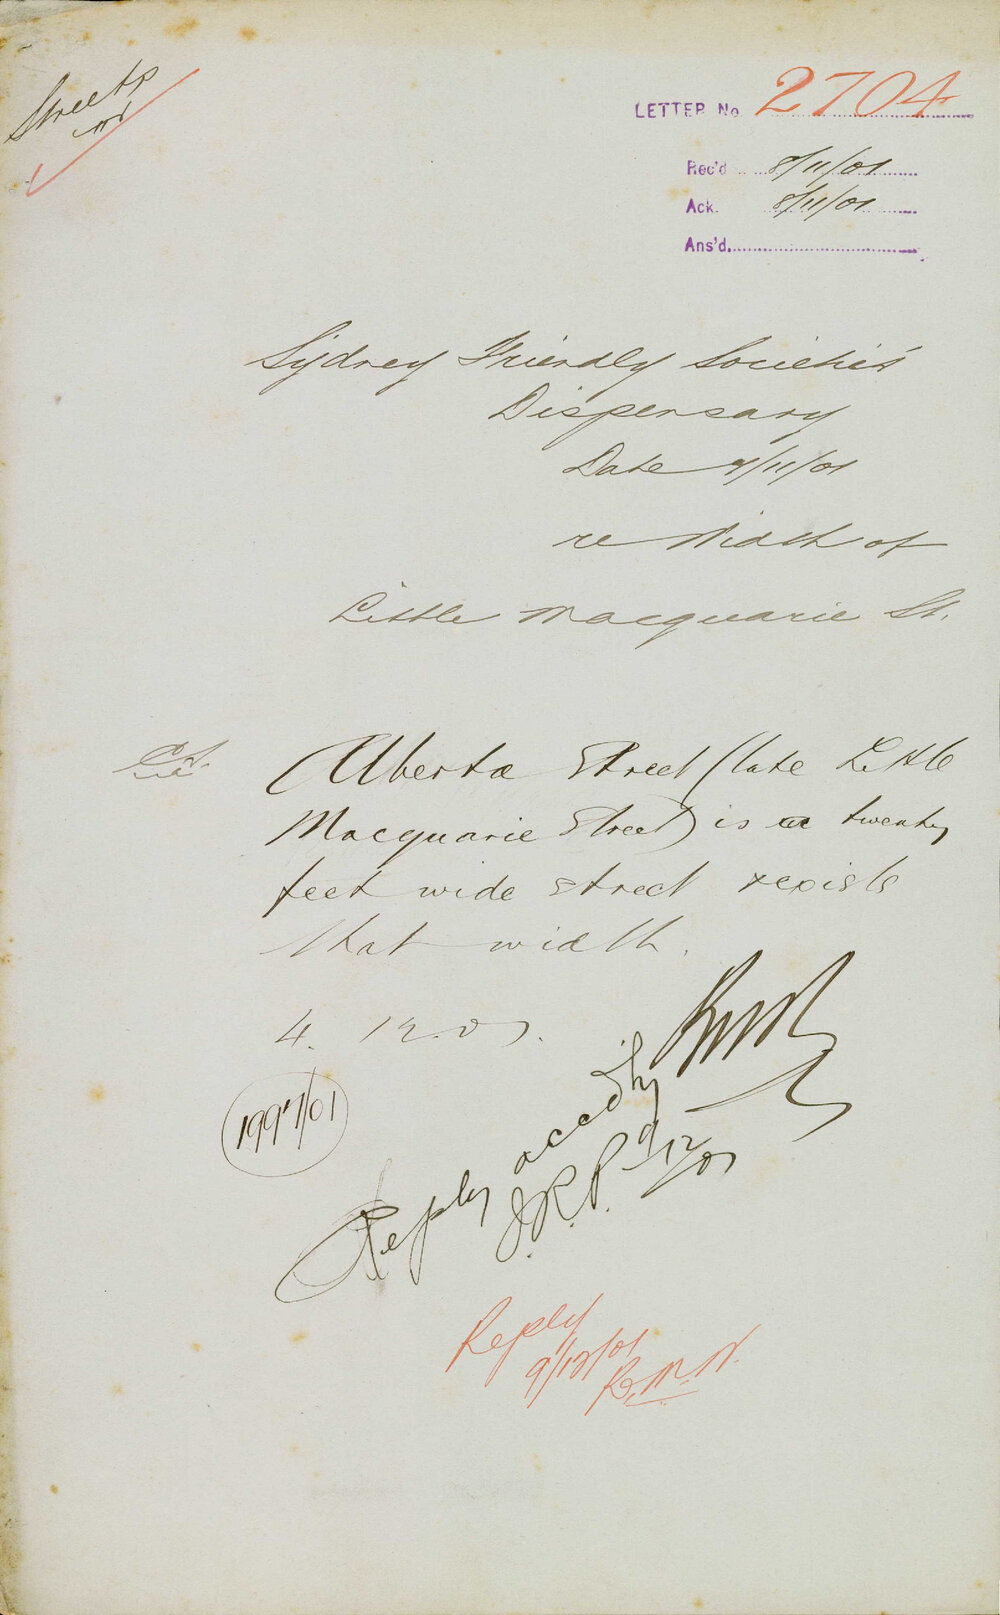 Streets
LETTER No 2704
Rec'd 8/11/01
Ack. 8/11/01
Ans'd.
Sydney Friendly Societies'
Dispensary
Date 7/11/01
re Width of
Little Macquarie St.
C.S.
Alberta Street (late Little
Macquarie Street) is a twenty
feet wide street & exists
that width.
4.12.01.
1997/01
Reply accd'ly
J.R.P. 9/12/01
Reply
9/12/01